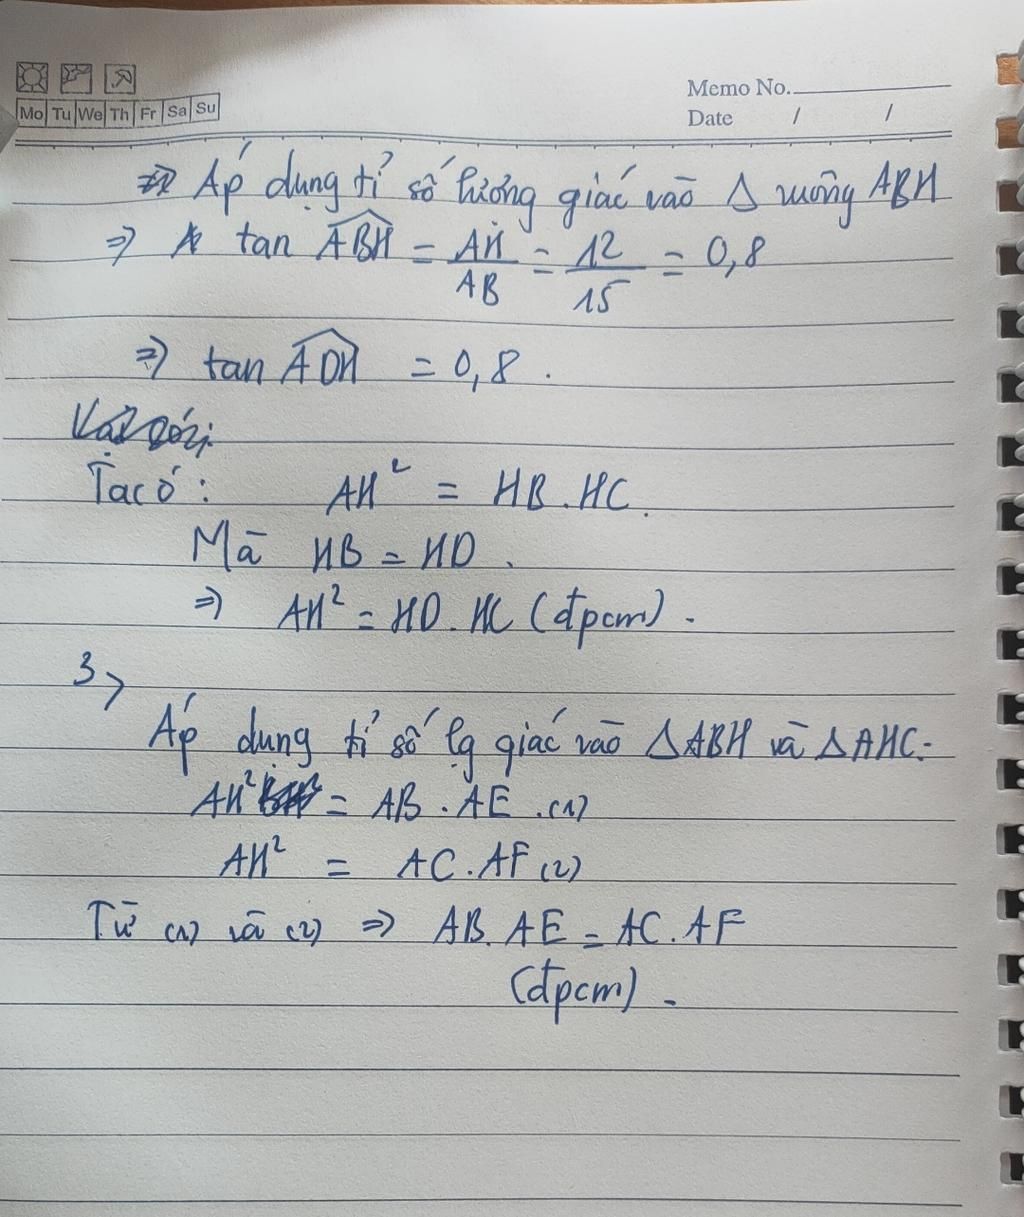 Mo Tu We Th Fr Sa Su
Memo No.
Date / /
Áp dụng tỉ số lượng giác vào Δ vuông ABH
=> tan ABH = AH/AB = 12/15 = 0,8
=> tan ADH = 0,8 .
Ta có : AH² = HB . HC .
Mà HB = HD .
=> AH² = HD . HC (đpcm) .
3>
Áp dụng tỉ số lg giác vào ΔABH và ΔAHC.
AH² = AB . AE . (1)
AH² = AC . AF (2)
Từ (1) và (2) => AB. AE = AC. AF
(đpcm) .